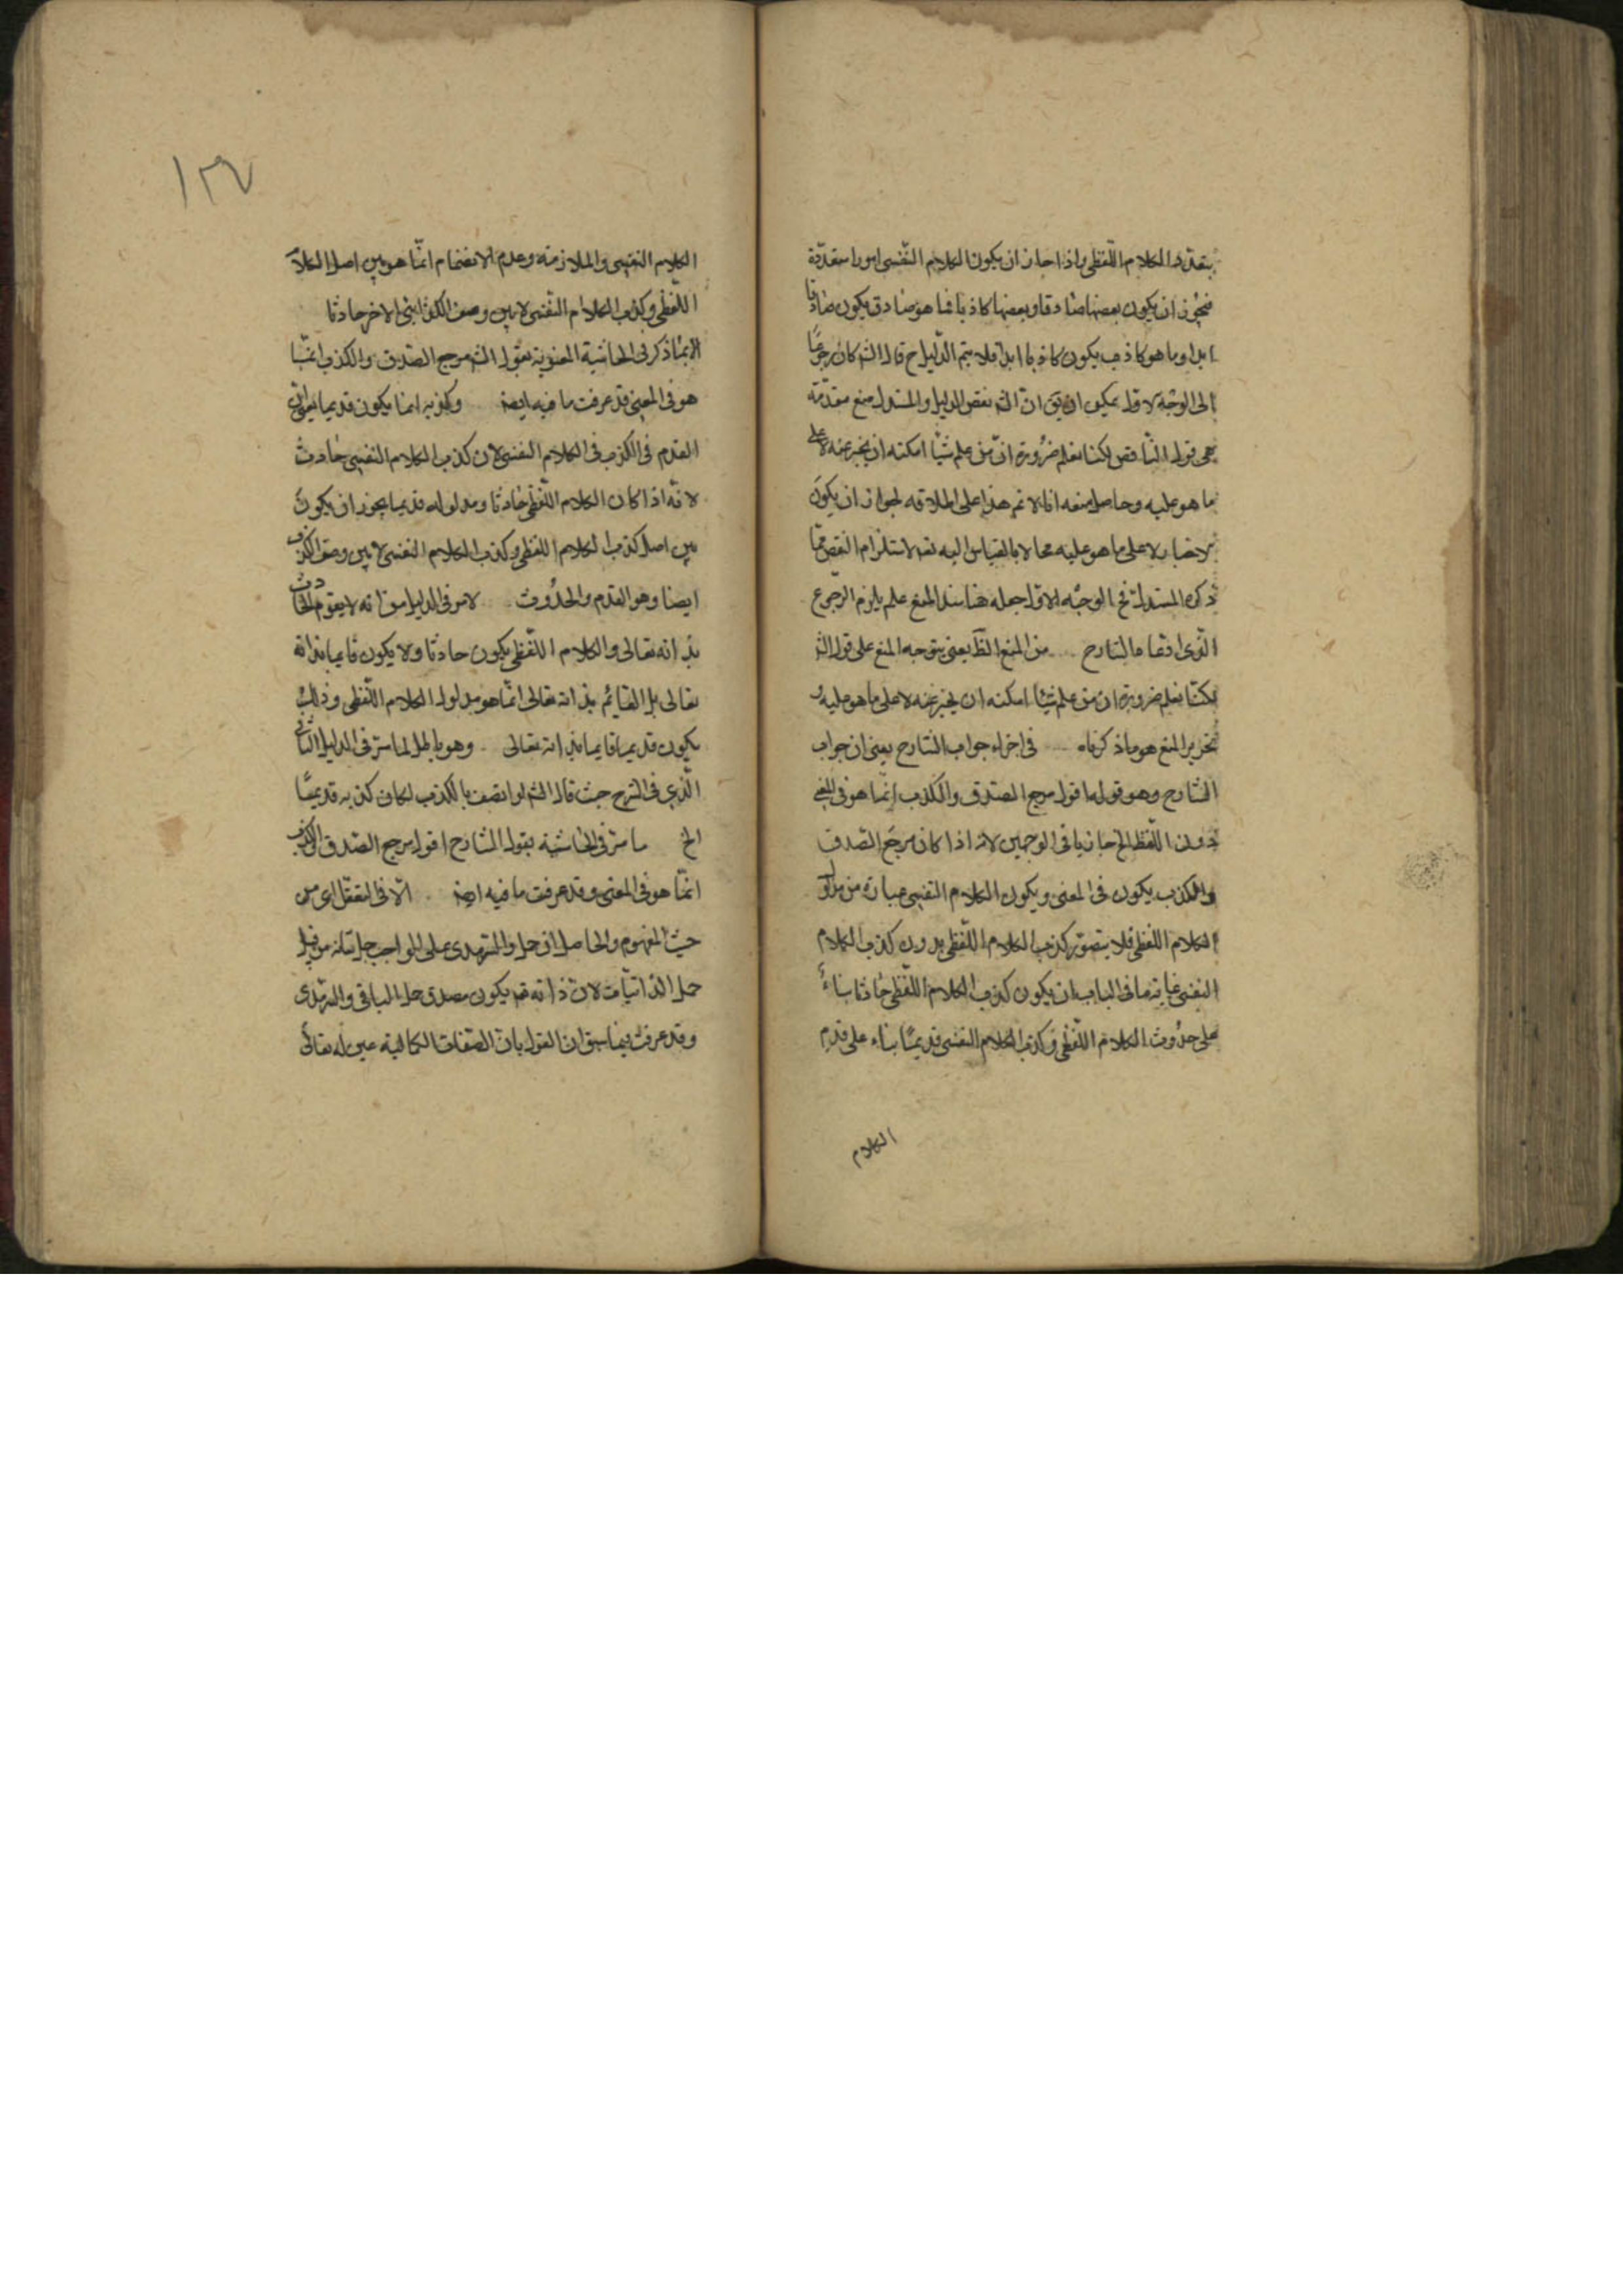 بتعدد الكلام اللّفظى واذا جاز ان يكون الكلام النّفسى امورا متعدّدة
فيجوز ان يكون بعضها صادقا وبعضها كاذبا فما هو صادق يكون صادقا
ابدا وما هو كاذب يكون كاذبا ابدا فلا يتم الدّليل ح قال الشه كان رجوعًا
الى الوجه الاول يمكن ان يق ان الشه نقض الدليل والمستدل منع مقدّمة
هى قوله الناقص لكنا نعلم ضرورة انّ من علم شيئًا امكنه ان يخبر عنه لا على
ما هو عليه وحاصل منعه انا لا نم هذا على اطلاقه لجواز ان يكون
الاخبار لا على ما هو عليه محالا بالقياس اليه تعه لاستلزام النقص ممّا
ذكره المستدل فى الوجه الاول جعله هنا سند المنع علم يلزم الرّجوع
الّذى ادّعاه الشارح من المنع الظّ يعنى يتوجه المنع على قول الشه
لكنّا نعلم ضرورة ان من علم شيئا امكنه ان يخبر عنه لا على ما هو عليه و
تحرير المنع هو ما ذكرناه فى اجراء جواب الشارح يعنى ان جواب
الشارح وهو قوله اقول مرجع الصدق والكذب انّما هو فى المعنى
دون اللّفظ الخ جار باقى الوجهين لانه اذا كان مرجع الصّدق
والكذب يكون فى المعنى ويكون الكلام النّفسى عبارة من مدلول
الكلام اللّفظى فلا يتصوّر كذب الكلام اللّفظى بدون كذب الكلام
النفسى غاية ما فى الباب ان يكون كذب الكلام اللّفظى حادثا بناءً
على حدوث الكلام اللّفظى وكذب الكلام النفسى قديمًا بناء على قدم
الكلام
١٣٧
الكلام النفسى والملازمة وعدم الانفصام انّما هو بين اصل الكلام
اللّفظى وكذب الكلام النّفسى لا بين وصف الاخر حادثا
ذكر فى الحاشية المعنونة بقول الشه مرجع الصّدق والكذب انّما
هو فى المعنى قد عرفت ما فيه ايضه وكذبه انما يكون قديما يعنى ان
القدم فى الكذب فى الكلام النفسى لان كذب الكلام النفسى حادث
لانّه اذا كان الكلام اللّفظى حادثا ومدلوله قديما يجوز ان يكون
بين اصل كذب الكلام اللفظى وكذب الكلام النفسى لا بين وصف الكذب
ايضا وهو القدم والحدُوث لامر فى الدليل من انّه لا يقوم الحادث
بذاته تعالى والكلام اللّفظى يكون حادثا ولا يكون قايما بذاته
تعالى بل القائم بذاته تعالى انّما هو مدلول الكلام اللّفظى وذلك
يكون قديما قايما بذاته تعالى وهو باطل لما مرّ فى الدليل الثانى
الّذى فى الشرح حيث قال الشه لو اتصف بالكذب لكان كذبه قديمًا
الخ ما مرّ فى الحاشية بقول الشارح اقول مرجع الصّدق والكذب
انّما هو فى المعنى وقد عرفت ما فيه ايضه الّا فى التعقّل اى من
حيث المفهوم والحاصل ان حمل والسّرمدى على الواجب جل شانه من قبيل
حمل الذاتيّات لان ذاته تعه يكون مصدق حمل الباقى والسّرمدى
وقد عرفت فيما سبق ان القول بان الصّفات الكمالية عين له تعالى